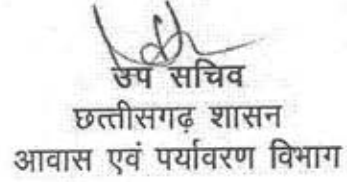 उप सचिव
छत्तीसगढ़ शासन
आवास एवं पर्यावरण विभाग